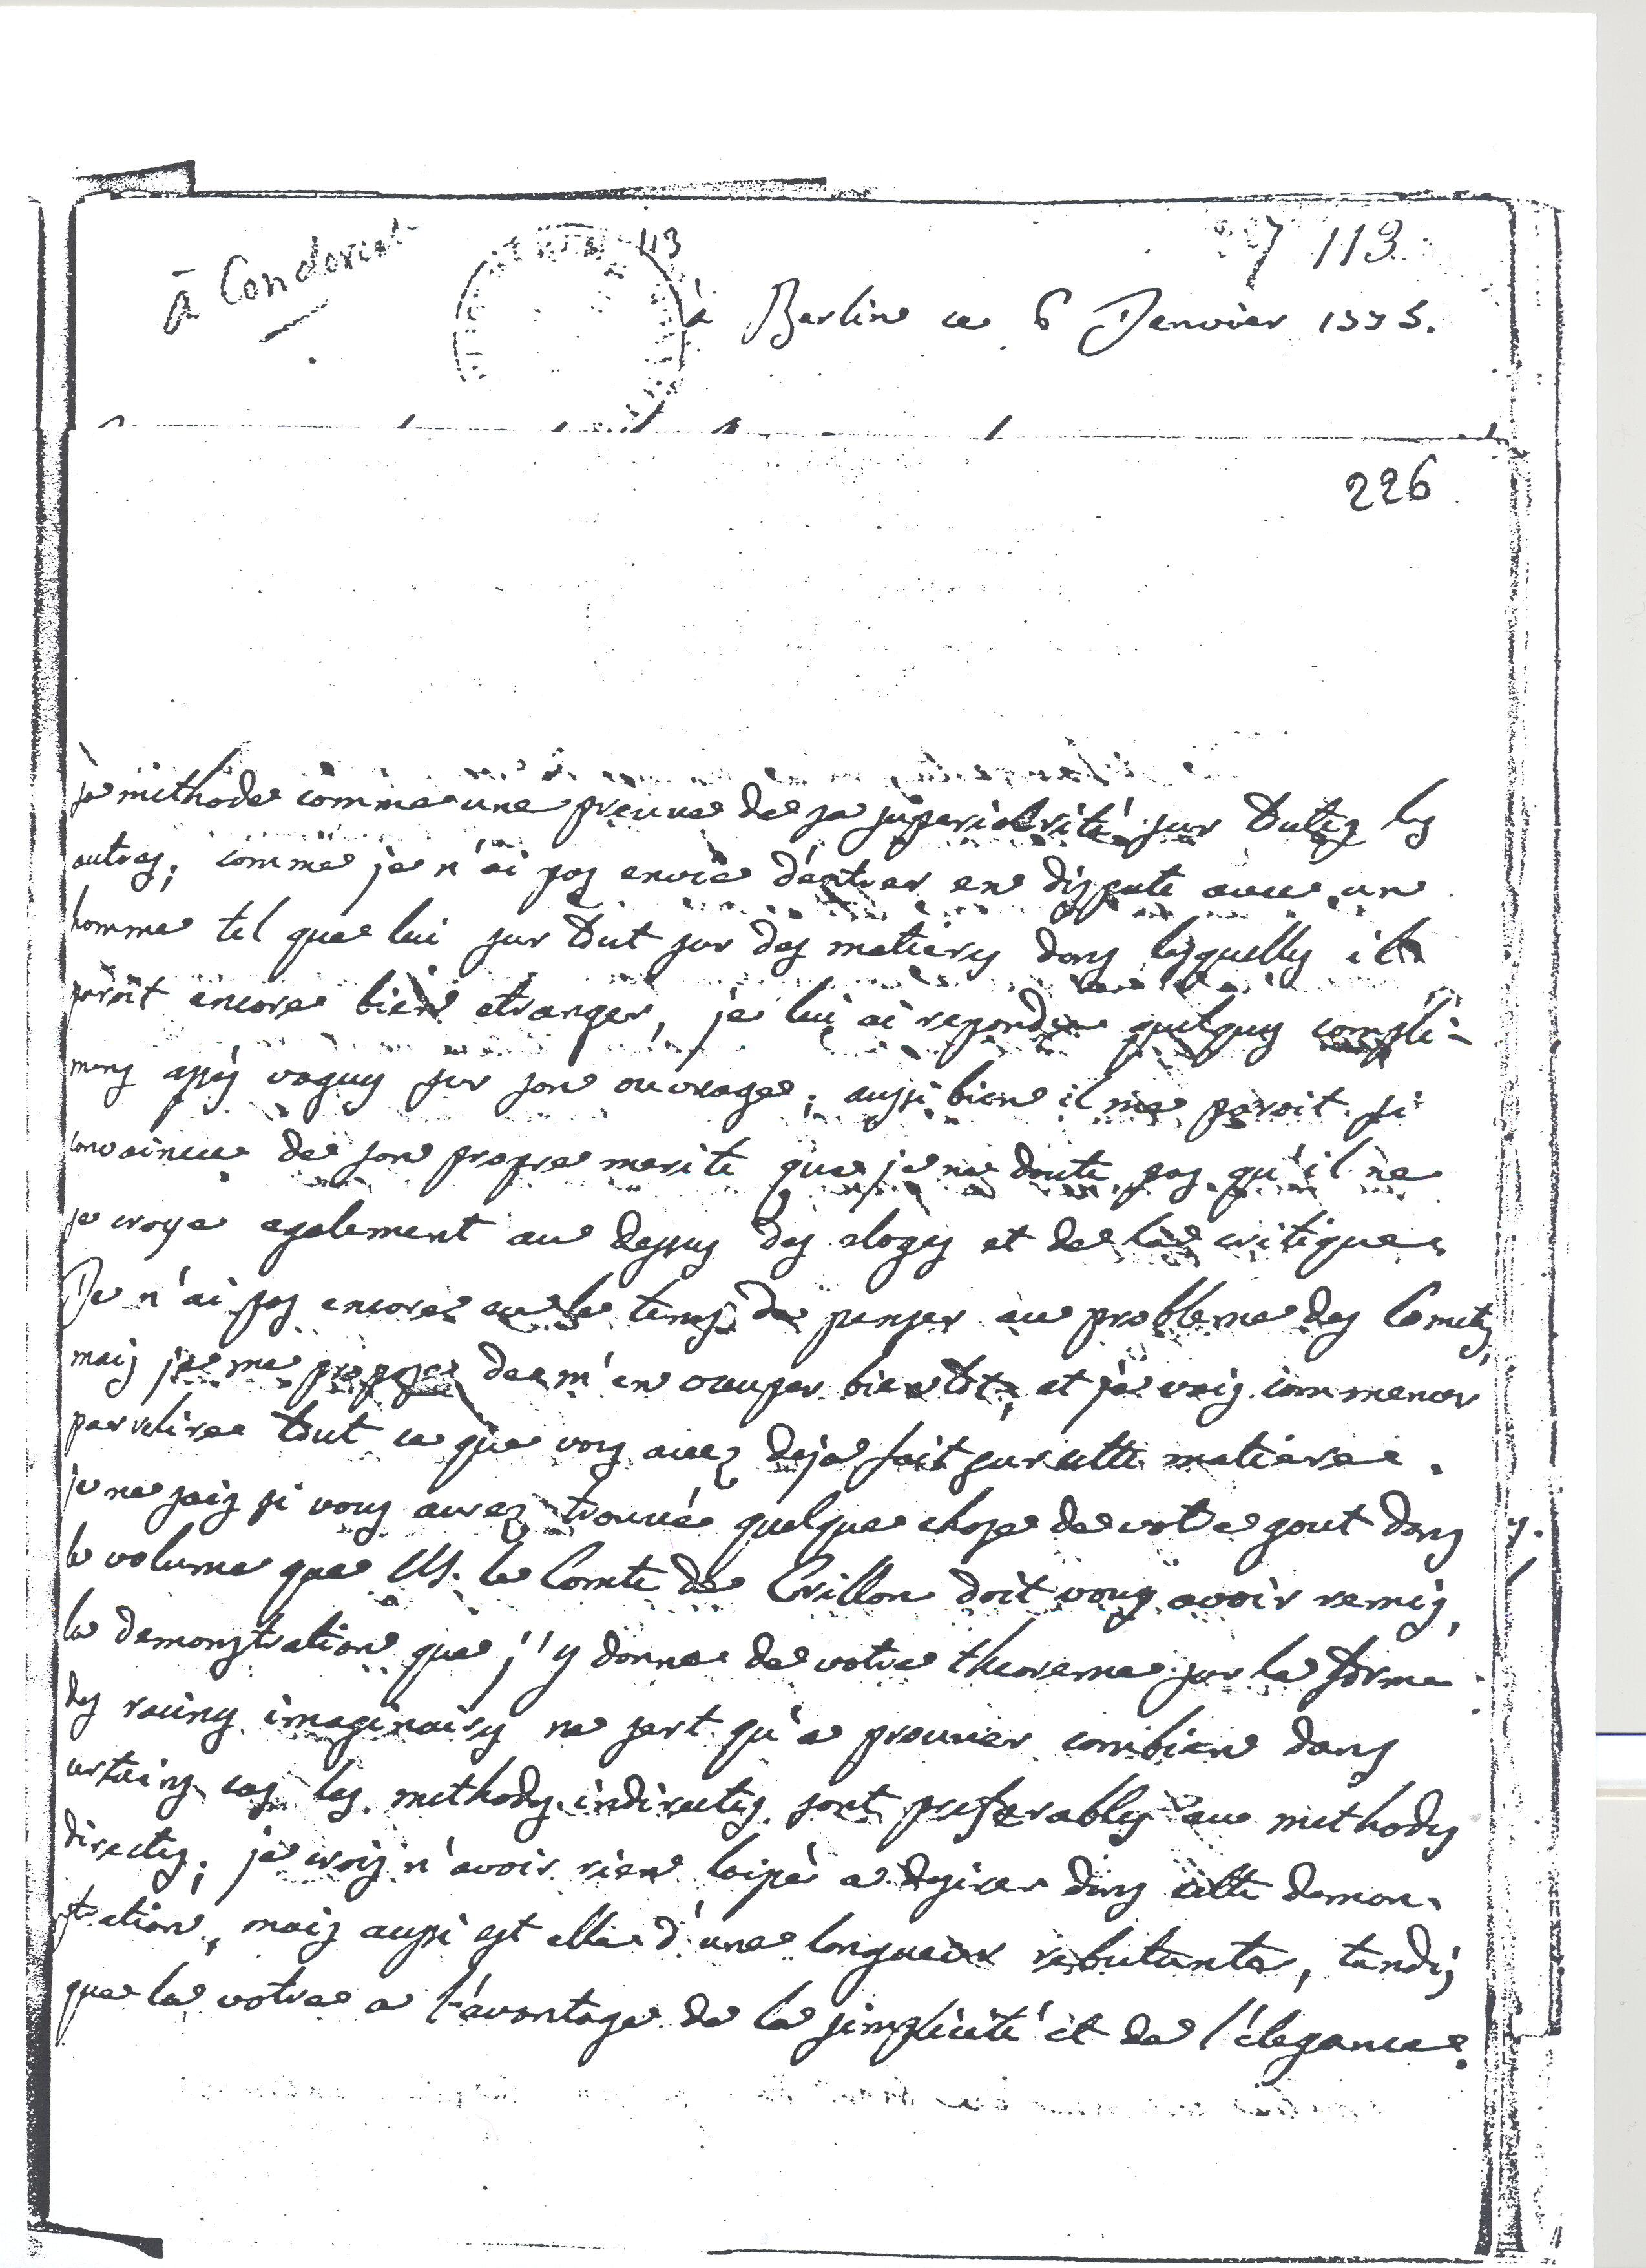 à Condorcet
113
97 113.
à Berlin ce 6 Janvier 1775.
226
sa methode comme une preuve de sa superiorité sur toutes les
autres; comme je n'ai pas envie d'entrer en dispute avec un
homme tel que lui sur tout sur des matieres dans lesquelles il
paroit encore bien etranger, je lui ai repondu quelques compli-
mens assés vagues sur son ouvrage; aussi bien il me paroit si
convaincu de son propre merite que je ne doute pas qu'il ne
se croye egalement au dessus des eloges et de la critique.
Je n'ai pas encore eu le tems de penser au probleme des Cometes,
mais je me propose de m'en occuper bientôt, et je vais commencer
par relire tout ce que vous avez deja fait sur cette matiere.
je ne sais si vous aurez trouvé quelque chose de votre gout dans
le volume que M. le Comte de Crillon doit vous avoir remis,
la demonstration que j'y donne de votre theoreme sur la forme
des racines imaginaires ne sert qu'a prouver combien dans
certains cas les methodes indirectes sont preferables au methodes
directes; je crois n'avoir rien laissé a desirer dans cette demon-
stration, mais aussi est elle d'une longueur rebutante, tandis
que la votre a l'avantage de la simplicité et de l'elegance.